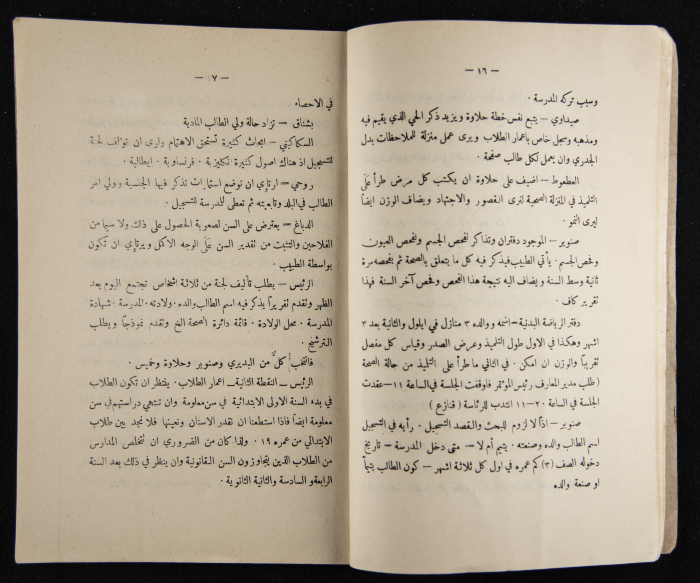 — ١٦ —
وسبب تركه المدرسة .
صيداوي — يتبع نفس خطة حلاوة ويزيد ذكر الحي الذي يقيم فيه
ومذهبه وسجل خاص باعمار الطلاب ويرى عمل منزلة للملاحظات بدل
الجدري وان يعمل لكل طالب صفحة .
العطعوط — اضيف على حلاوة ان يكتب كل مرض طرأ عَلَى
التلميذ في المنزلة الصحية لنرى القصور والاجتهاد ويضاف الوزن ايضاً
ليرى النمو .
صنوبر — الموجود دفتران وتذاكر لفحص الجسم ولفحص العيون
وفحص الجسم . يأتي الطبيب فيذكر فيه كل ما يتعلق بالصحة ثم يفحصه مرة
ثانية وسط السنة ويضاف اليه نتيجة هذا الفحص وفحص آخر السنة فهذا
تقرير كاف .
دفتر الرياضة البدنية — اسمه ووالده ٣ منازل في ايلول والثانية بعد ٣
اشهر وهكذا في الاول طول التلميذ وعرض الصدر وقياس كل مفصل
تقريباً والوزن ان امكن . في الثاني ما طرأ على التلميذ من حالة الصحة
(طلب مدير المعارف رئيس المؤتمر فاوقفت الجلسة في الساعة ١١ — عقدت
الجلسة في الساعة ٢٠ – ١١ انتدب للرئاسة ( قنازع )
صنوبر — اذاً لا لزوم للبحث والقصد التسجيل . رأيه في التسجيل
اسم الطالب والده وصنعته . يتيم أم لا — متى دخل المدرسة — تاريخ
دخوله الصف (٣) كم عمره في اول كل ثلاثة اشهر — كون الطالب يتيماً
او صنعة والده
— ١٧ —
في الاحصاء
بشناق — تزاد حالة ولي الطالب المادية
السكاكيني — ابحاث كثيرة تستحق الاهتمام وارى ان تؤلف لجنة
للتسجيل اذ هناك اصول كثيرة انكليزية . فرنساوية . ايطالية .
روحي — ارتاي ان توضع استمارات تذكر فيها الجنسية وولي امر
الطالب في البلد وتابعيته ثم تعطى للمدرسة للتسجيل .
الدباغ — يعترض على السن لصعوبة الحصول على ذلك ولا سيما من
الفلاحين والتثبت من تقدير السن عَلَى الوجه الاكمل ويرتاي ان تكون
بواسطة الطبيب .
الرئيس — يطلب تأليف لجنة من ثلاثة اشخاص تجتمع اليوم بعد
الظهر وتقدم تقريراً يذكر فيه اسم الطالب والده . ولادته . المدرسة . شهادة
المدرسة . محل الولادة . قائمة دائرة الصحة الخ وتقدم نموذجاً ويطلب
الترشيح .
فانتخب كلٌ من البديري وصنوبر وحلاوة وخميس .
الرئيس — النقطة الثانية — اعمار الطلاب . ينتظر ان تكون الطلاب
في بدء السنة الاولى الابتدائية في سن معلومة وان تنتهي دراستهم في سن
معلومة ايضاً فاذا استطعنا ان نقدر الاسنان ونعينها فلا نجد بين طلاب
الابتدائي من عمره ١٩ . ولذا كان من الضروري ان نتخلص المدارس
من الطلاب الذين يتجاوزون السن القانونية وان ينظر في ذلك بعد السنة
الرابعة والسادسة والثانية الثانوية .